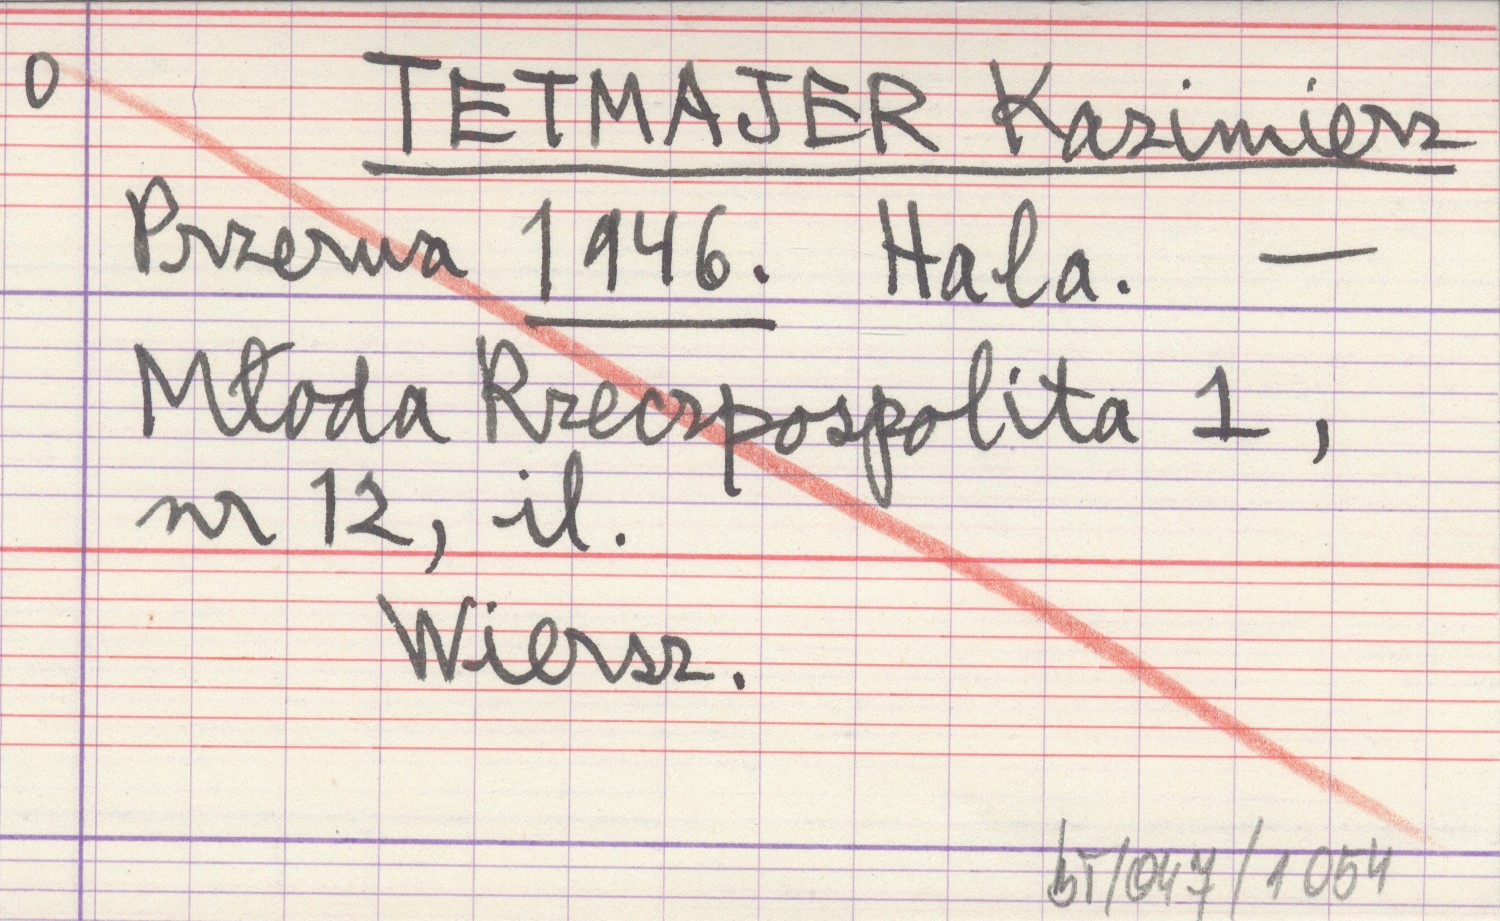 0 TETMAJER Kazimierz
Przerwa 1946. Hala. —
Młoda Rzeczpospolita 1,
nr 12, il.
Wiersz.
bī/047/1054